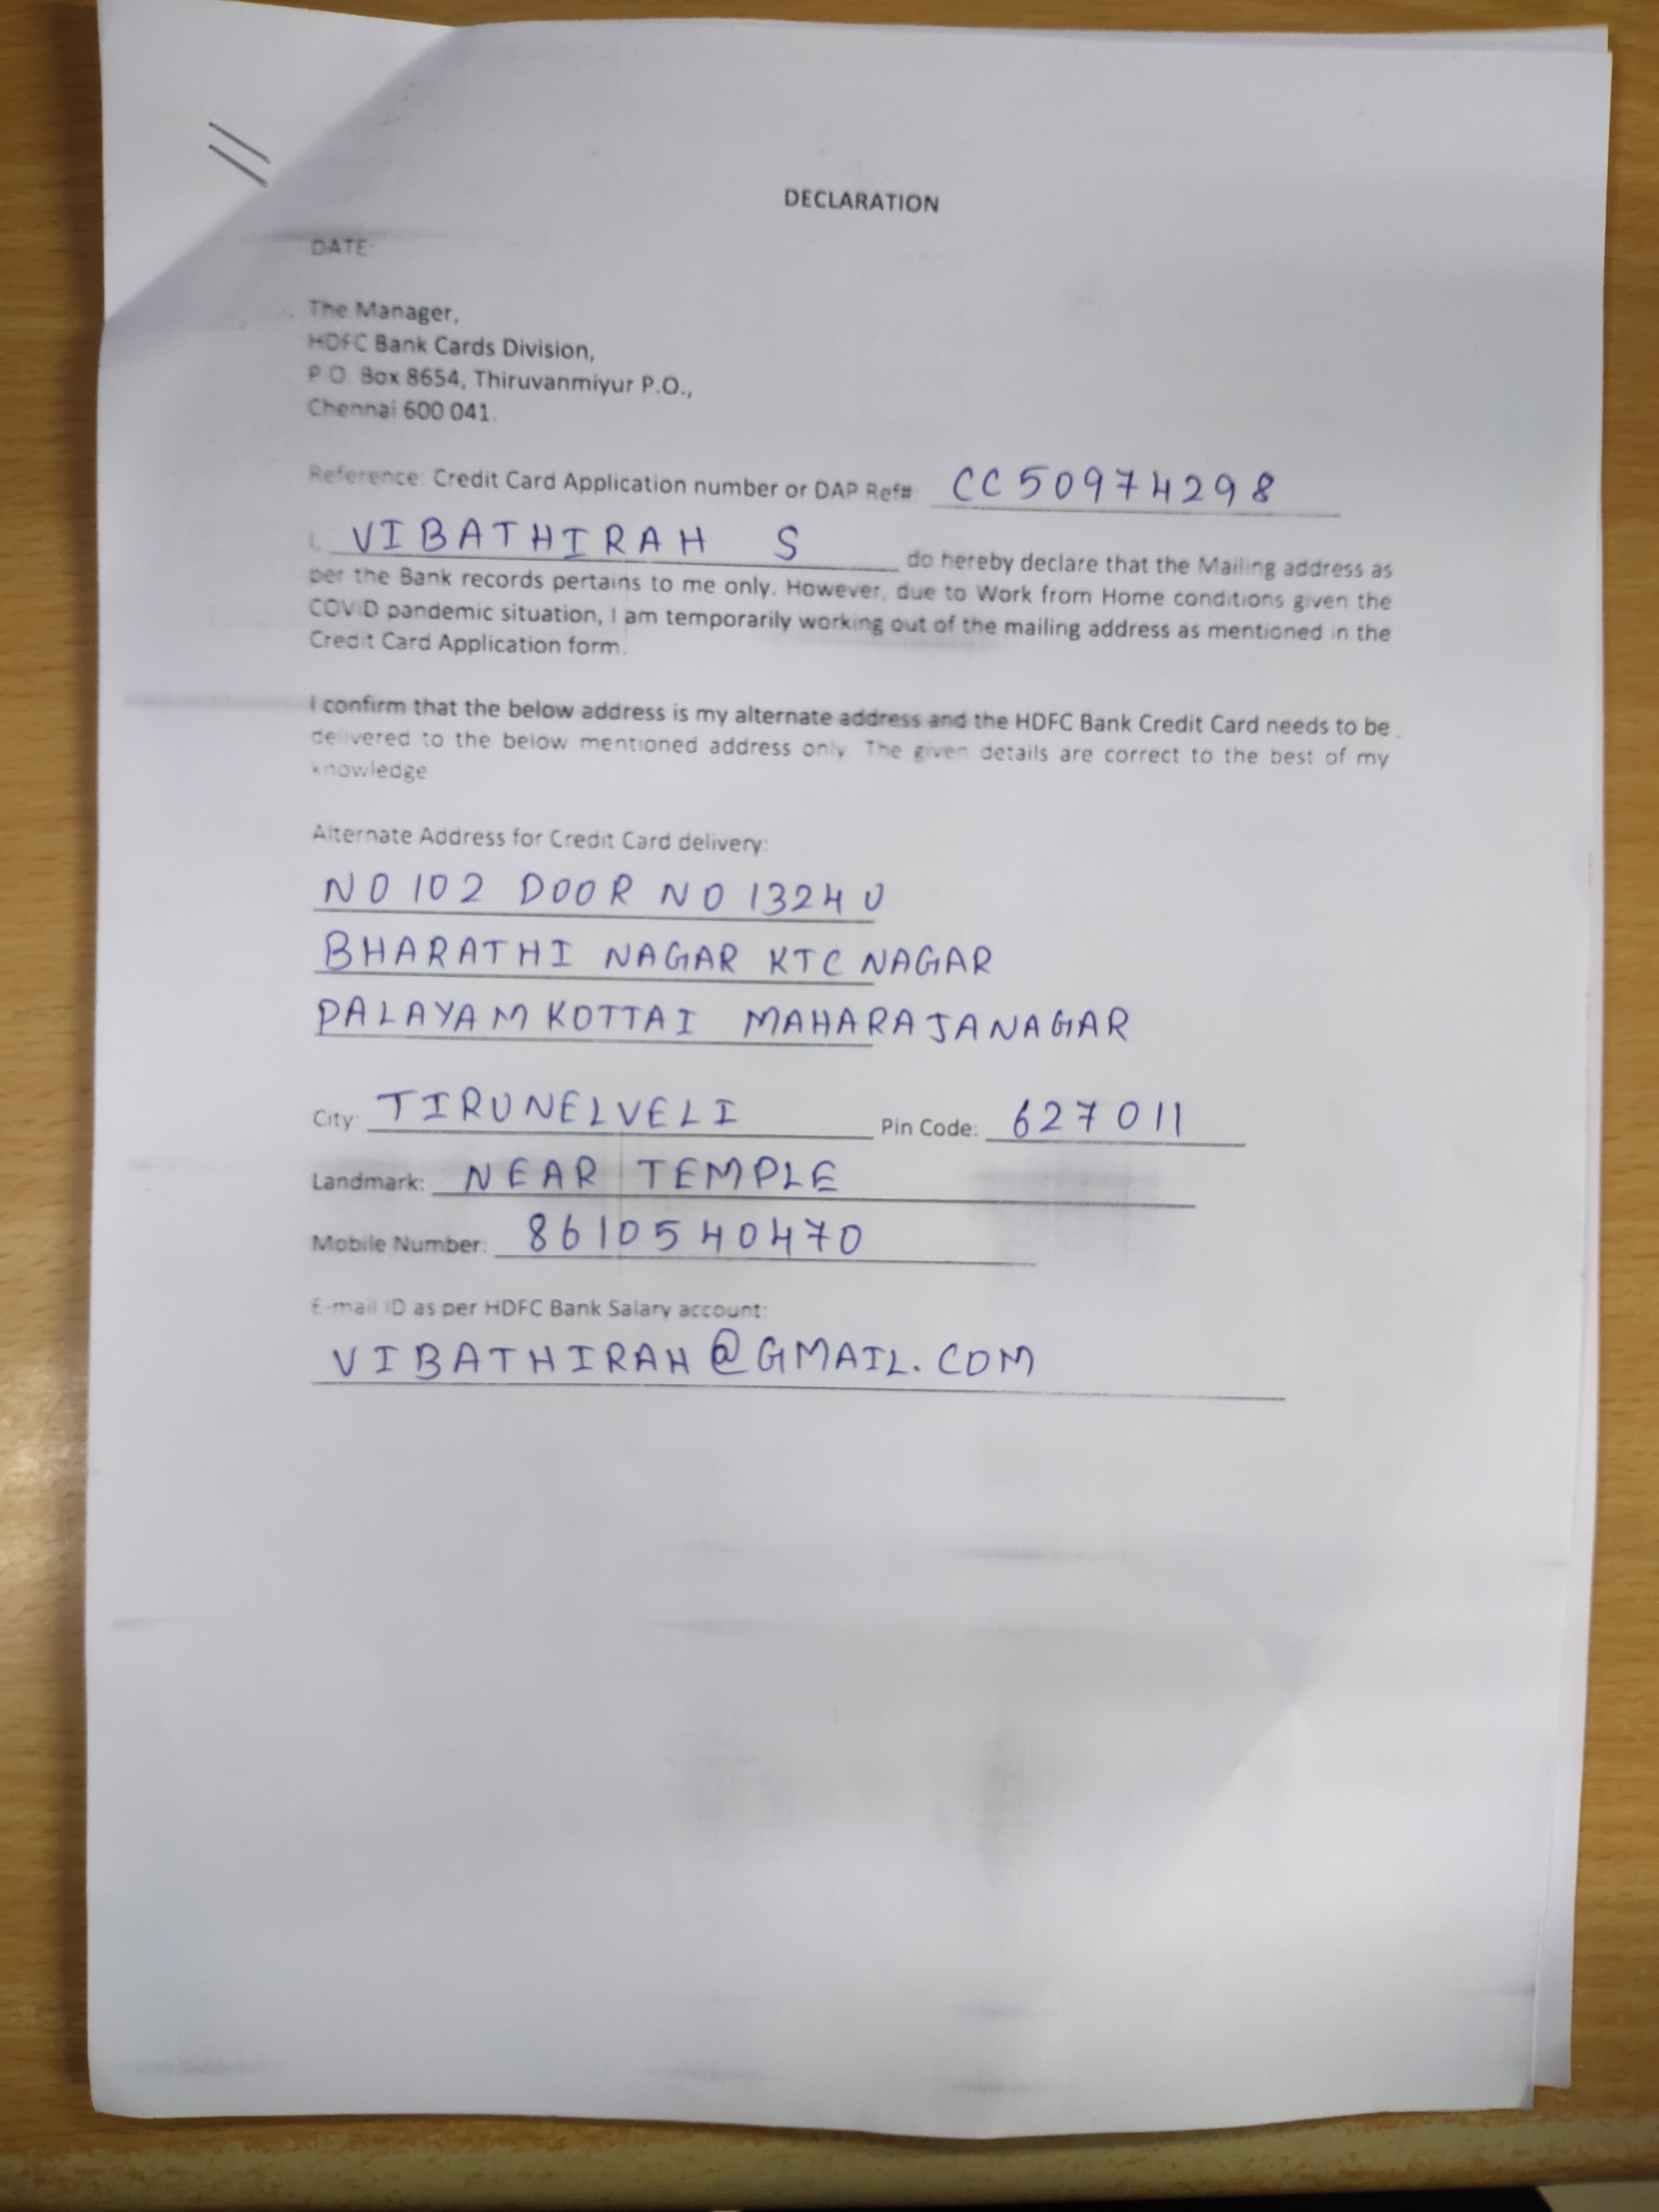 DECLARATION
DATE:
The Manager,
HDFC Bank Cards Division,
P.O. Box 8654, Thiruvanmiyur P.O.,
Chennai 600 041.
Reference: Credit Card Application number or DAP Ref# CC50974298
I, VIBATHIRAH S do hereby declare that the Mailing address as
per the Bank records pertains to me only. However, due to Work from Home conditions given the
COVID pandemic situation, I am temporarily working out of the mailing address as mentioned in the
Credit Card Application form.
I confirm that the below address is my alternate address and the HDFC Bank Credit Card needs to be
delivered to the below mentioned address only. The given details are correct to the best of my
knowledge
Alternate Address for Credit Card delivery:
NO 102 DOOR NO 1324 U
BHARATHI NAGAR KTC NAGAR
PALAYAMKOTTAI MAHARAJANAGAR
City: TIRUNELVELI Pin Code: 627011
Landmark: NEAR TEMPLE
Mobile Number: 8610540470
E-mail ID as per HDFC Bank Salary account:
VIBATHIRAH@GMAIL.COM